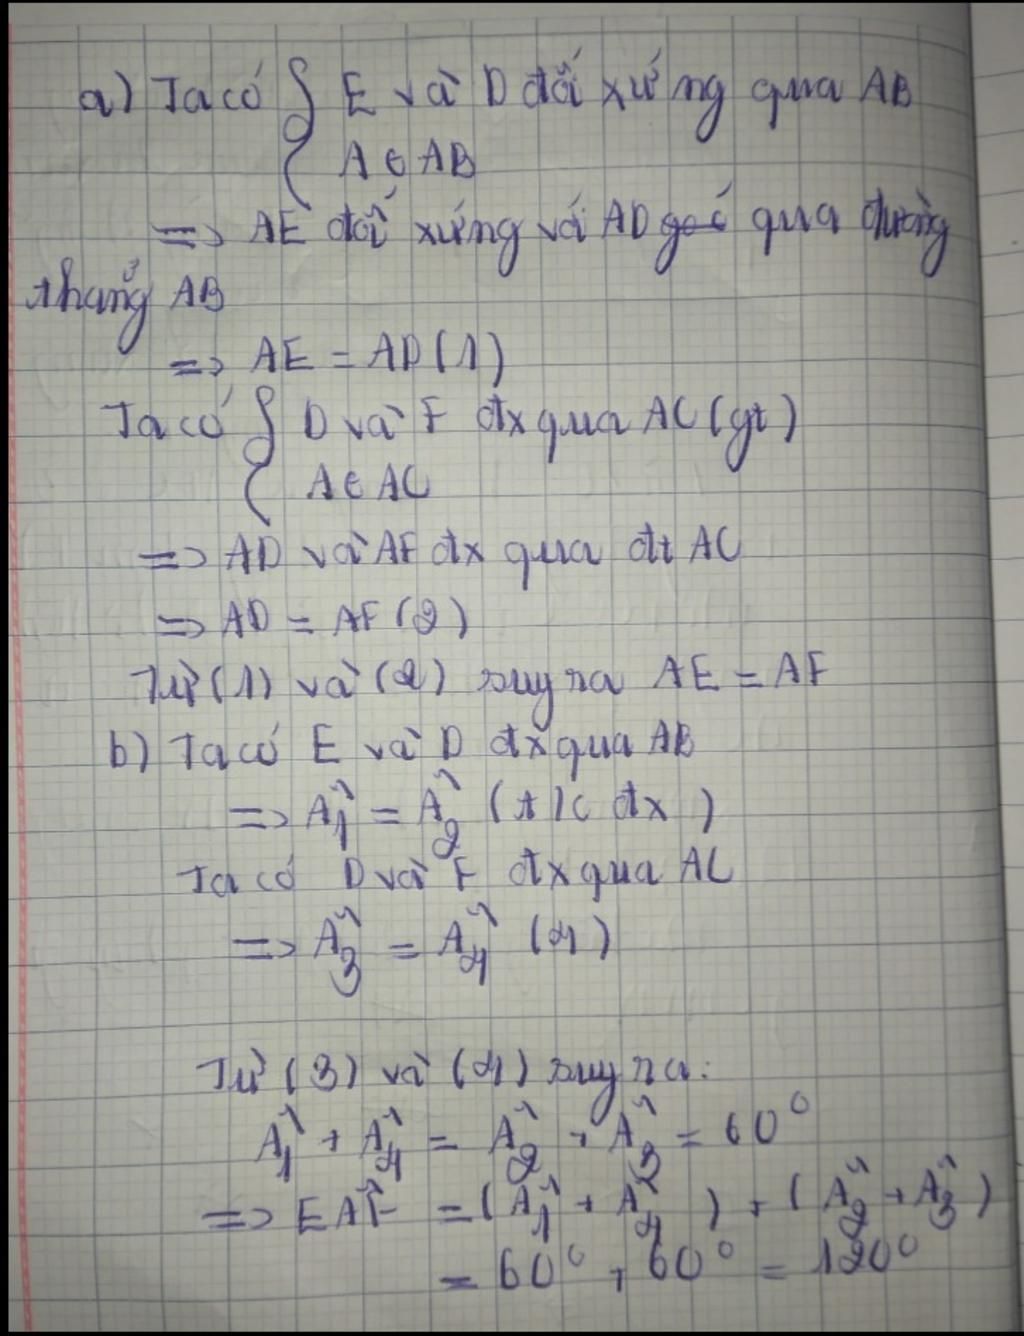 a) Ta có { E và D đối xứng qua AB
A ∈ AB
=> AE đối xứng với AD qua đường
thẳng AB
=> AE = AD (1)
Ta có { D và F đx qua AC (gt)
A ∈ AC
=> AD và AF đx qua đt AC
=> AD = AF (2)
Từ (1) và (2) suy ra AE = AF
b) Ta có E và D đx qua AB
=> Â1 = Â2 (t/c đx)
Ta có D và F đx qua AC
=> Â3 = Â4 (4)
Từ (3) và (4) suy ra:
Â1 + Â4 = Â2 + Â3 = 60°
=> EÂF = (Â1 + Â4) + (Â2 + Â3)
= 60° + 60° = 120°